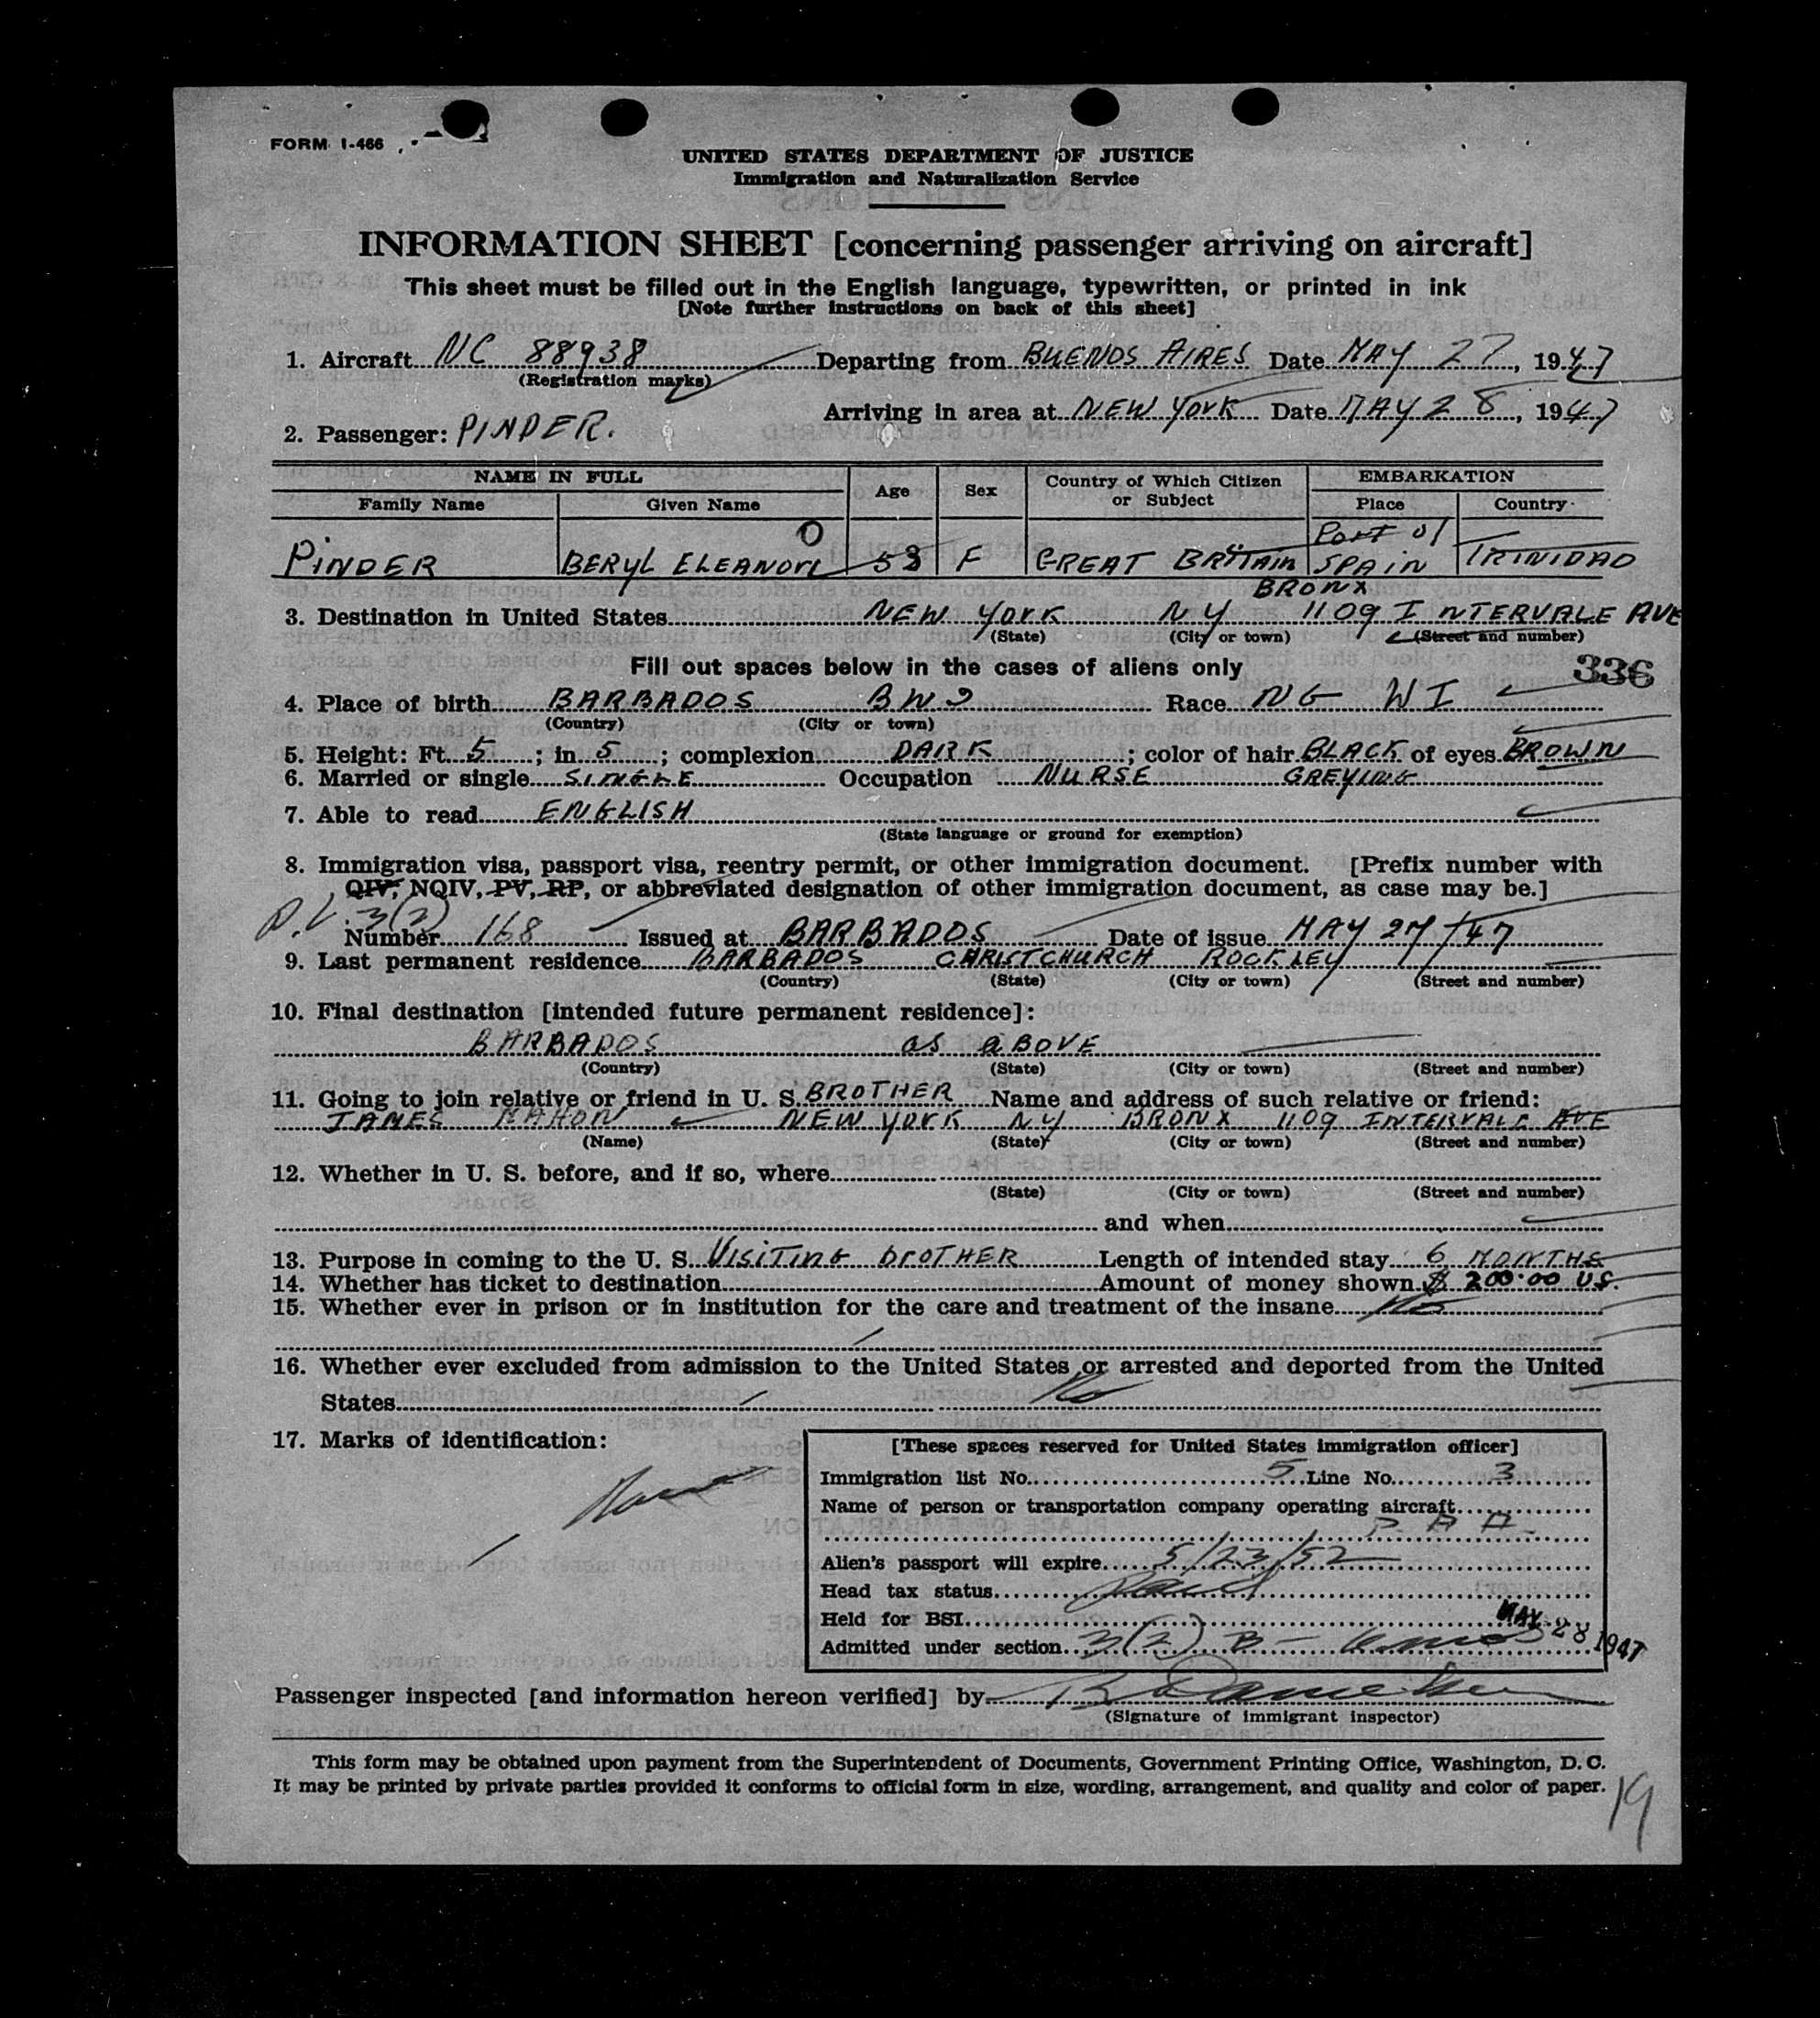 FORM I-466
UNITED STATES DEPARTMENT OF JUSTICE
Immigration and Naturalization Service
INFORMATION SHEET [concerning passenger arriving on aircraft]
This sheet must be filled out in the English language, typewritten, or printed in ink
[Note further instructions on back of this sheet]
1. Aircraft NC 88938 Departing from BUENOS AIRES Date MAY 27, 1947
(Registration marks)
Arriving in area at NEW YORK Date MAY 28, 1947
2. Passenger: PINDER.
NAME IN FULL Age Sex Country of Which Citizen or Subject EMBARKATION
Family Name Given Name Place Country
PINDER BERYL ELEANOR 53 F GREAT BRITAIN Port of SPAIN TRINIDAD
BRONX
3. Destination in United States NEW YORK NY 1109 INTERVALE AVE
(State) (City or town) (Street and number)
Fill out spaces below in the cases of aliens only
336
4. Place of birth BARBADOS BWI Race NG WI
(Country) (City or town)
5. Height: Ft. 5; in. 5; complexion DARK; color of hair BLACK of eyes BROWN
6. Married or single SINGLE Occupation NURSE GREYING
7. Able to read ENGLISH
(State language or ground for exemption)
8. Immigration visa, passport visa, reentry permit, or other immigration document. [Prefix number with
QIV, NQIV, PV, RP, or abbreviated designation of other immigration document, as case may be.]
P.V. 3(2)
Number 168 Issued at BARBADOS Date of issue MAY 27/47
9. Last permanent residence BARBADOS CHRISTCHURCH ROCKLEY
(Country) (State) (City or town) (Street and number)
10. Final destination [intended future permanent residence]:
BARBADOS as aBOVE
(Country) (State) (City or town) (Street and number)
11. Going to join relative or friend in U. S. BROTHER Name and address of such relative or friend:
JAMES MAHON NEW YORK NY BRONX 1109 INTERVALE AVE
(Name) (State) (City or town) (Street and number)
12. Whether in U. S. before, and if so, where
(State) (City or town) (Street and number)
and when
13. Purpose in coming to the U. S. VISITING brOTHER Length of intended stay 6 MONTHS
14. Whether has ticket to destination Amount of money shown $ 200.00 US.
15. Whether ever in prison or in institution for the care and treatment of the insane No
16. Whether ever excluded from admission to the United States or arrested and deported from the United
States No
17. Marks of identification:
None
[These spaces reserved for United States immigration officer]
Immigration list No. 5 Line No. 3
Name of person or transportation company operating aircraft
P. A. A.
Alien's passport will expire 5/23/52
Head tax status
Held for BSI
MAY 28 1947
Admitted under section 3(2) B - 6 mos
Passenger inspected [and information hereon verified] by
(Signature of immigrant inspector)
This form may be obtained upon payment from the Superintendent of Documents, Government Printing Office, Washington, D. C.
It may be printed by private parties provided it conforms to official form in size, wording, arrangement, and quality and color of paper.
19